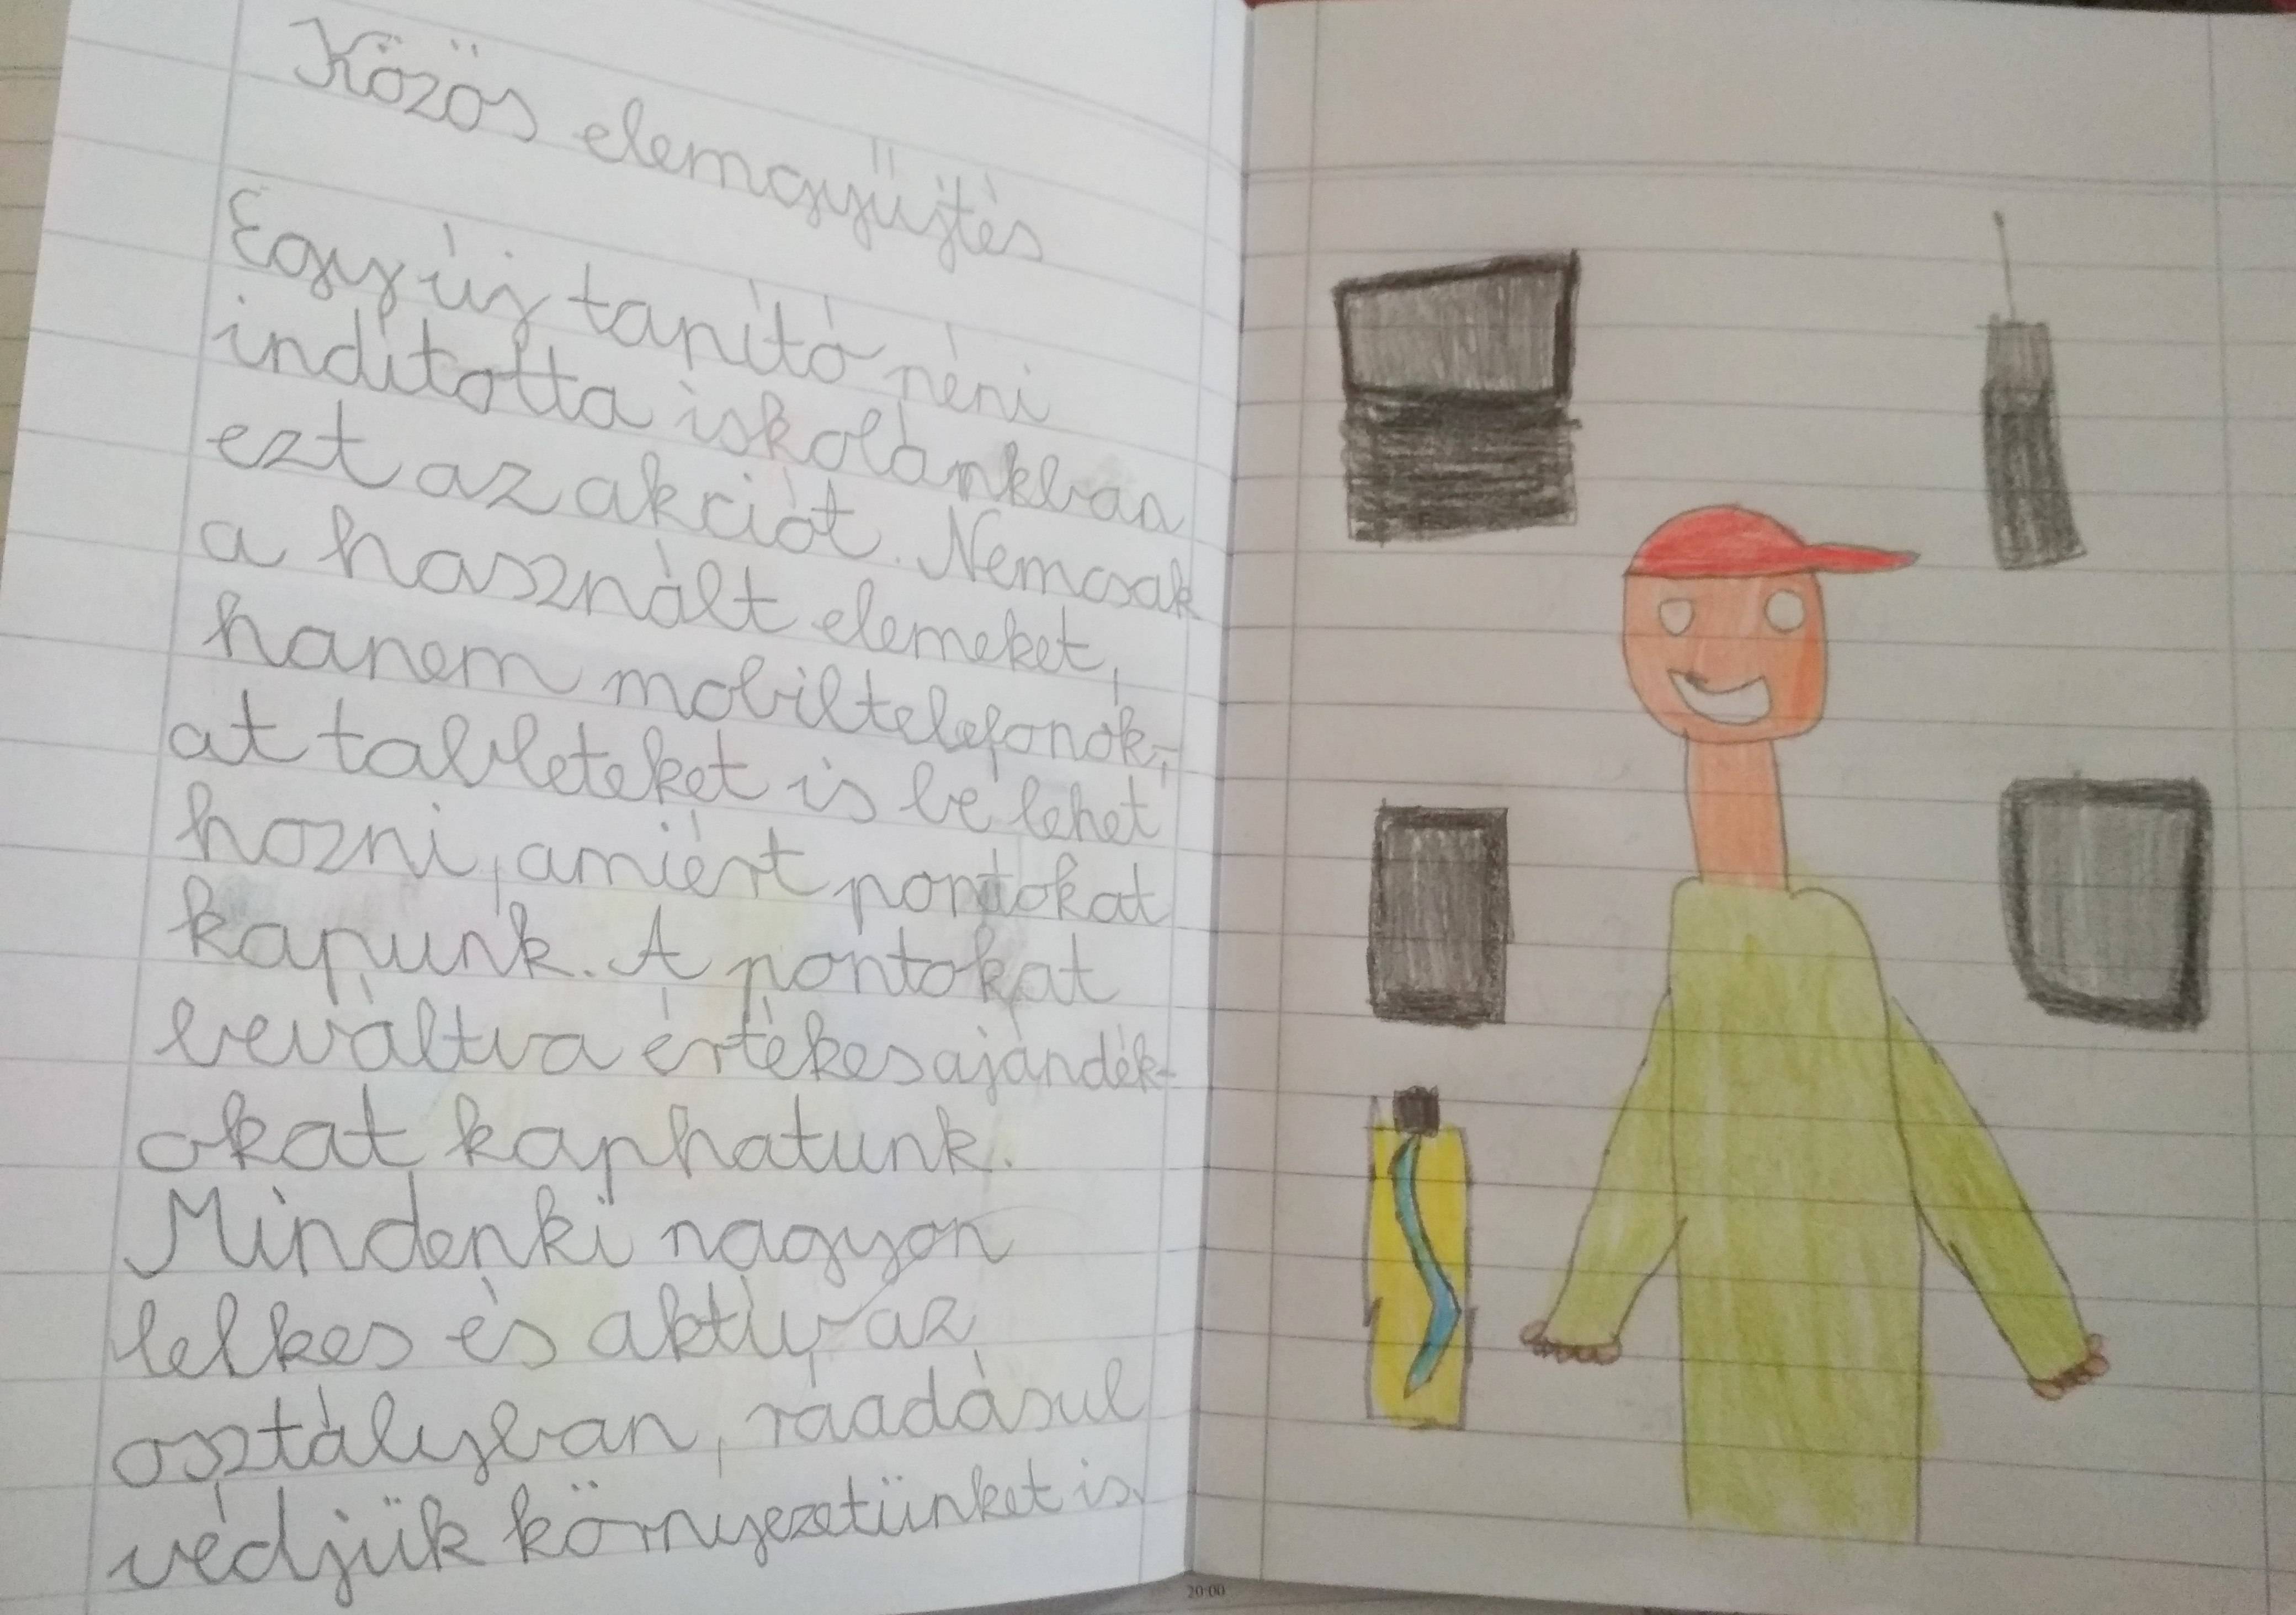 Közös elemgyűjtés
Egy új tanító néni
indította iskolánkban
ezt az akciót. Nemcsak
a használt elemeket,
hanem mobiltelefonok,-
at tableteket is be lehet
hozni, amiért pontokat
kapunk. A pontokat
beváltva értékes ajándék-
okat kaphatunk.
Mindenki nagyon
lelkes és aktív az
osztályban, ráadásul
védjük környezetünket is.
20:00